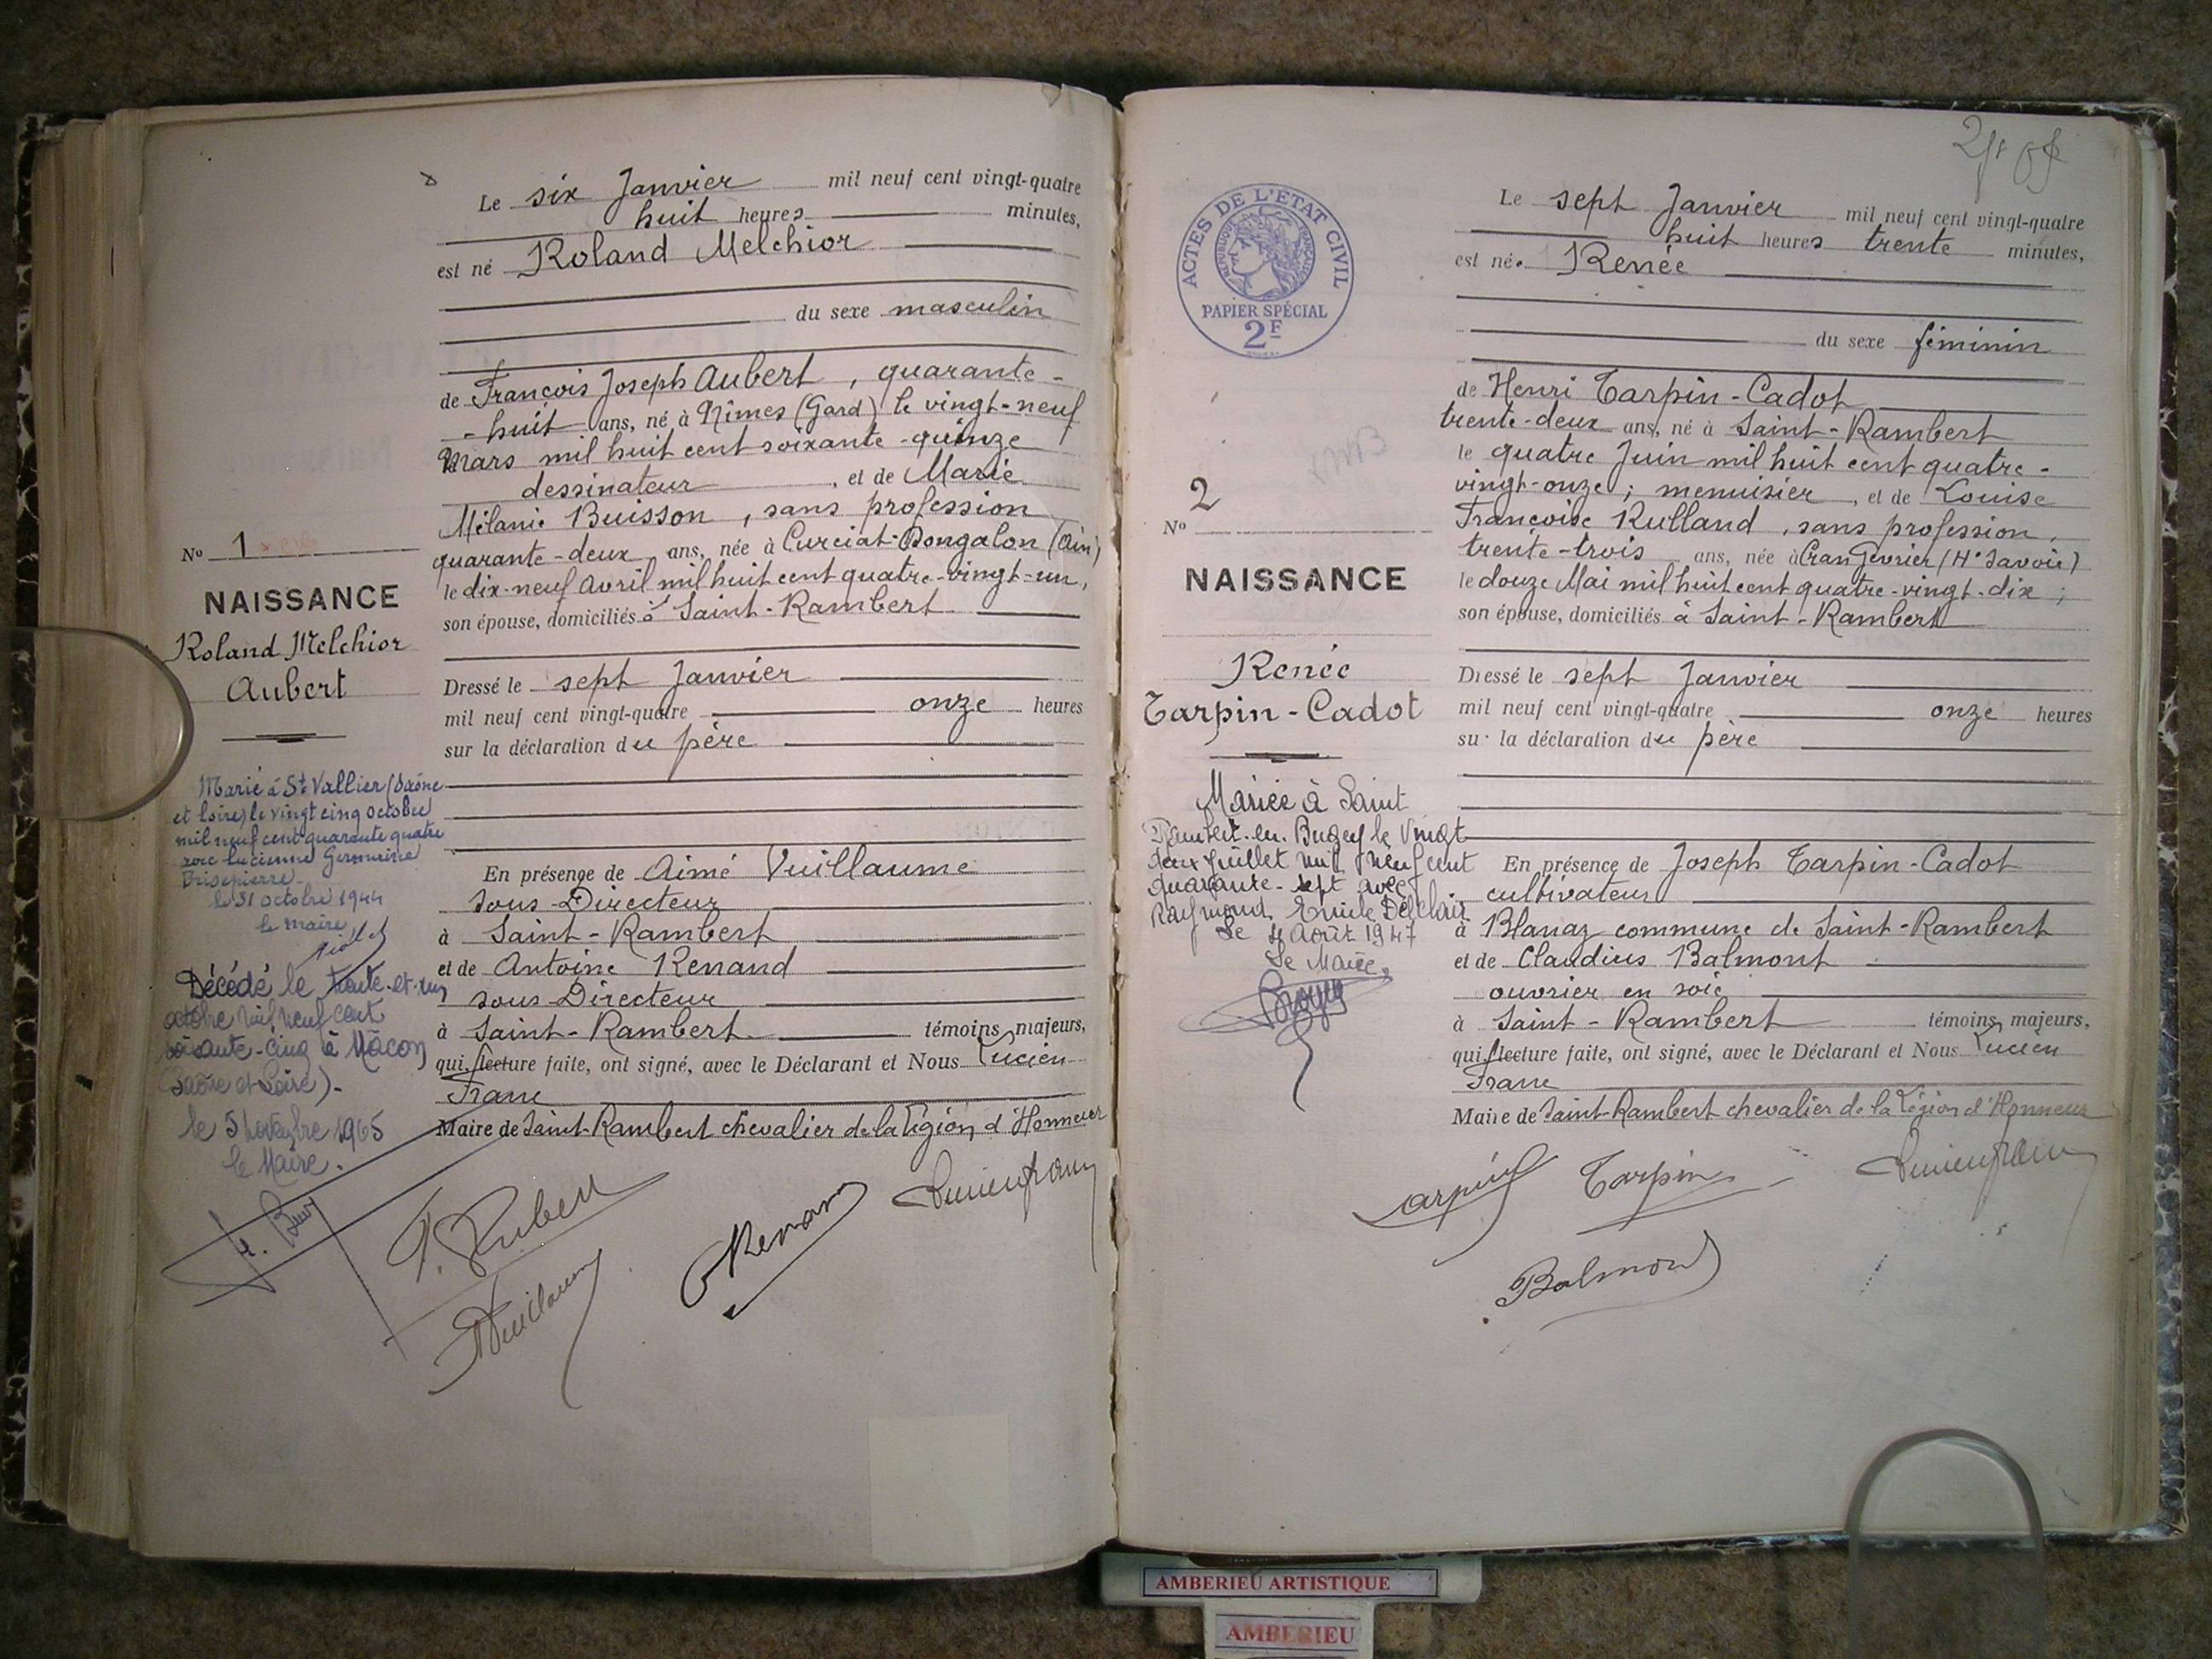 Le six Janvier mil neuf cent vingt-quatre
huit heures minutes,
est né Roland Melchior
du sexe masculin
de François Joseph Aubert, quarante-
-huit ans, né à Nîmes (Gard) le vingt-neuf
Mars mil huit cent soixante-quinze
dessinateur, et de Marie
Mélanie Buisson, sans profession
quarante-deux ans, née à Curciat-Dongalon (Ain)
le dix-neuf Avril mil huit cent quatre-vingt-un,
son épouse, domiciliés à Saint-Rambert
Dressé le sept Janvier
mil neuf cent vingt-quatre onze heures
sur la déclaration du père
En présence de Aimé Vuillaume
sous-Directeur
à Saint-Rambert
et de Antoine Renand
sous-Directeur
à Saint-Rambert témoins majeurs,
qui, lecture faite, ont signé, avec le Déclarant et Nous Lucien
Franc
Maire de Saint-Rambert chevalier de la Légion d'Honneur
No 1
NAISSANCE
Roland Melchior
Aubert
Marié à St Vallier (Saône
et Loire) le vingt cinq octobre
mil neuf cent quarante quatre
avec Lucienne Germaine
Brisepierre
le 31 octobre 1944
le maire
Décédé le trente-et-un
octobre mil neuf cent
soixante-cinq à Mâcon
(Saône et Loire)-
le 5 Novembre 1965
le Maire.
Vuillaume
Renand
Lucien Franc
ACTES DE L'ETAT CIVIL
REPUBLIQUE FRANÇAISE
PAPIER SPÉCIAL
2F
Le sept Janvier mil neuf cent vingt-quatre
huit heures trente minutes,
est née Renée
du sexe féminin
de Henri Tarpin-Cadot
trente-deux ans, né à Saint-Rambert
le quatre Juin mil huit cent quatre-
vingt-onze; menuisier, et de Louise
Françoise Rulland, sans profession,
trente-trois ans, née à Cran Gevrier (Hte Savoie)
le douze Mai mil huit cent quatre-vingt-dix;
son épouse, domiciliés à Saint-Rambert
Dressé le sept Janvier
mil neuf cent vingt-quatre onze heures
sur la déclaration du père
En présence de Joseph Tarpin-Cadot
cultivateur
à Blanaz commune de Saint-Rambert
et de Claudius Balmont
ouvrier en soie
à Saint-Rambert témoins majeurs,
qui, lecture faite, ont signé, avec le Déclarant et Nous Lucien
Franc
Maire de Saint-Rambert chevalier de la Légion d'Honneur
No 2
NAISSANCE
Renée
Tarpin-Cadot
Mariée à Saint
Rambert-en-Bugey le vingt
deux Juillet mil neuf cent
quarante-sept avec
Raymond, Emile Délclair
Le 4 Août 1947
Le Maire,
Tarpin
Lucien Franc
Balmont
AMBERIEU ARTISTIQUE
AMBERIEU